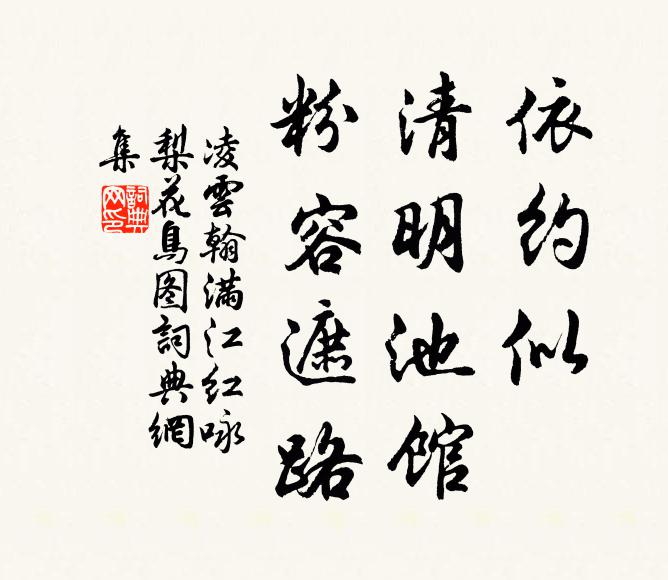 依约似
清明池馆
粉容遮路
凌雲翰满江红咏
梨花鳥图詞典網
集
詞典
网印